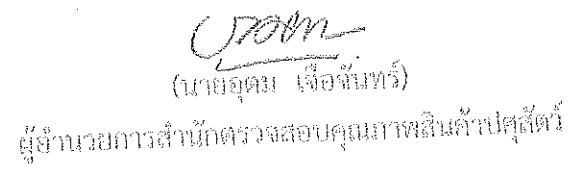 (นายอุดม เจือจันทร์)
ผู้อำนวยการสำนักตรวจสอบคุณภาพสินค้าปศุสัตว์